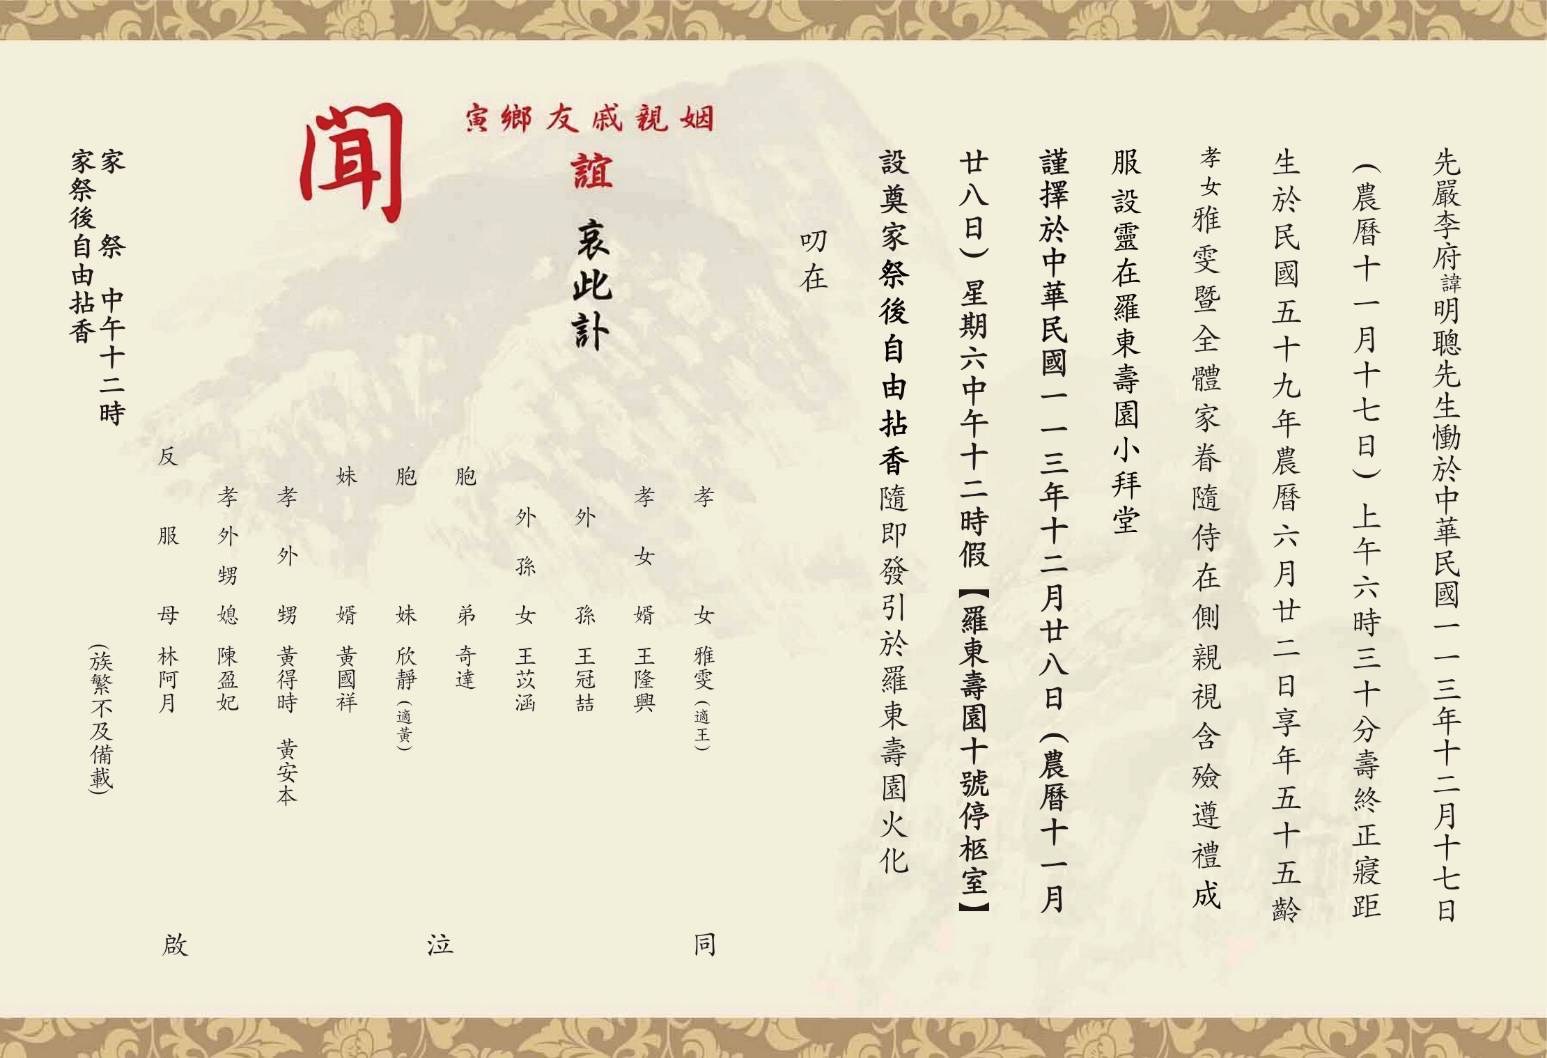 先嚴李府諱明聰先生慟於中華民國一一三年十二月十七日
(農曆十一月十七日)上午六時三十分壽終正寢距
生於民國五十九年農曆六月廿二日享年五十五齡
孝女雅雯暨全體家眷隨侍在側親視含殮遵禮成
服設靈在羅東壽園小拜堂
謹擇於中華民國一一三年十二月廿八日(農曆十一月
廿八日)星期六中午十二時假【羅東壽園十號停柩室】
設奠家祭後自由拈香隨即發引於羅東壽園火化
叨在
姻親戚友鄉寅
誼 哀此訃
聞
孝女 雅雯(適王)
孝女婿 王隆興
外孫 王冠喆
外孫女 王苡涵
胞弟 奇達
胞妹 欣靜(適黃)
妹婿 黃國祥
孝外甥 黃得時 黃安本
孝外甥媳 陳盈妃
反服母 林阿月
(族繁不及備載)
同泣啟
家祭 中午十二時
家祭後自由拈香